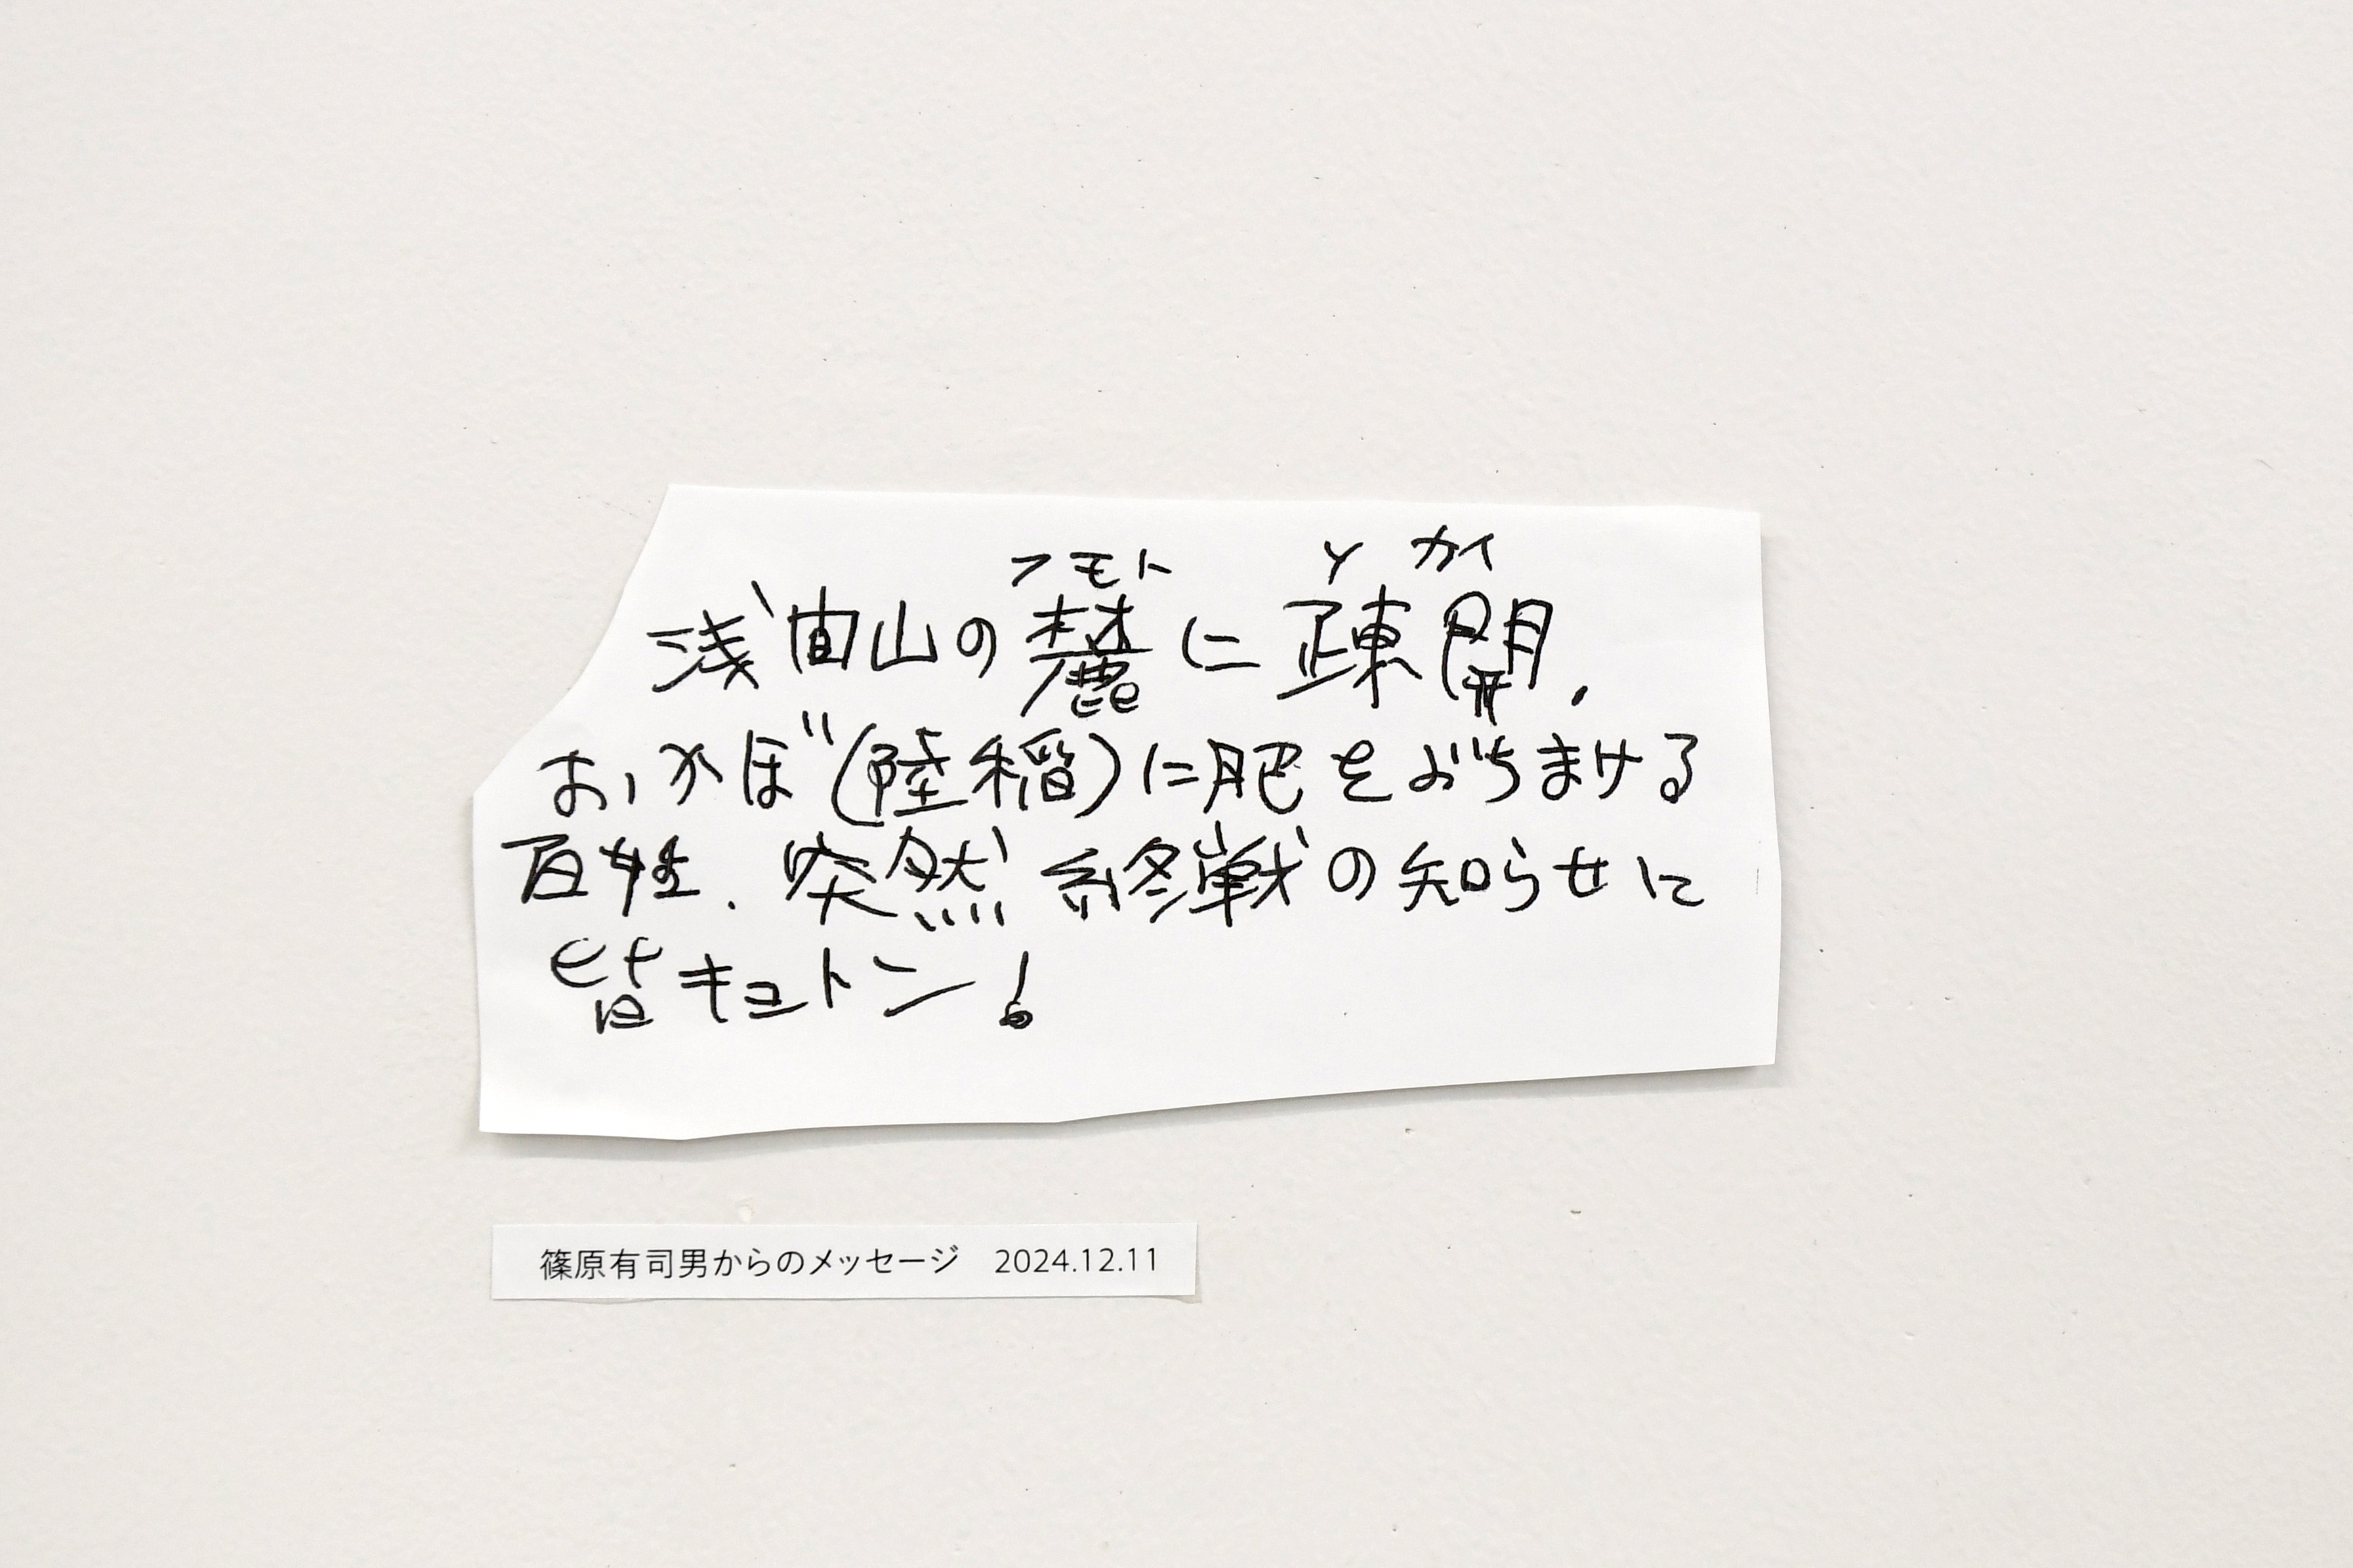 フモト ソカイ
浅間山の麓に疎開.
おかぼ(陸稲)に肥をぶちまける
百姓.突然 終戦の知らせに
皆キョトン!
篠原有司男からのメッセージ 2024.12.11